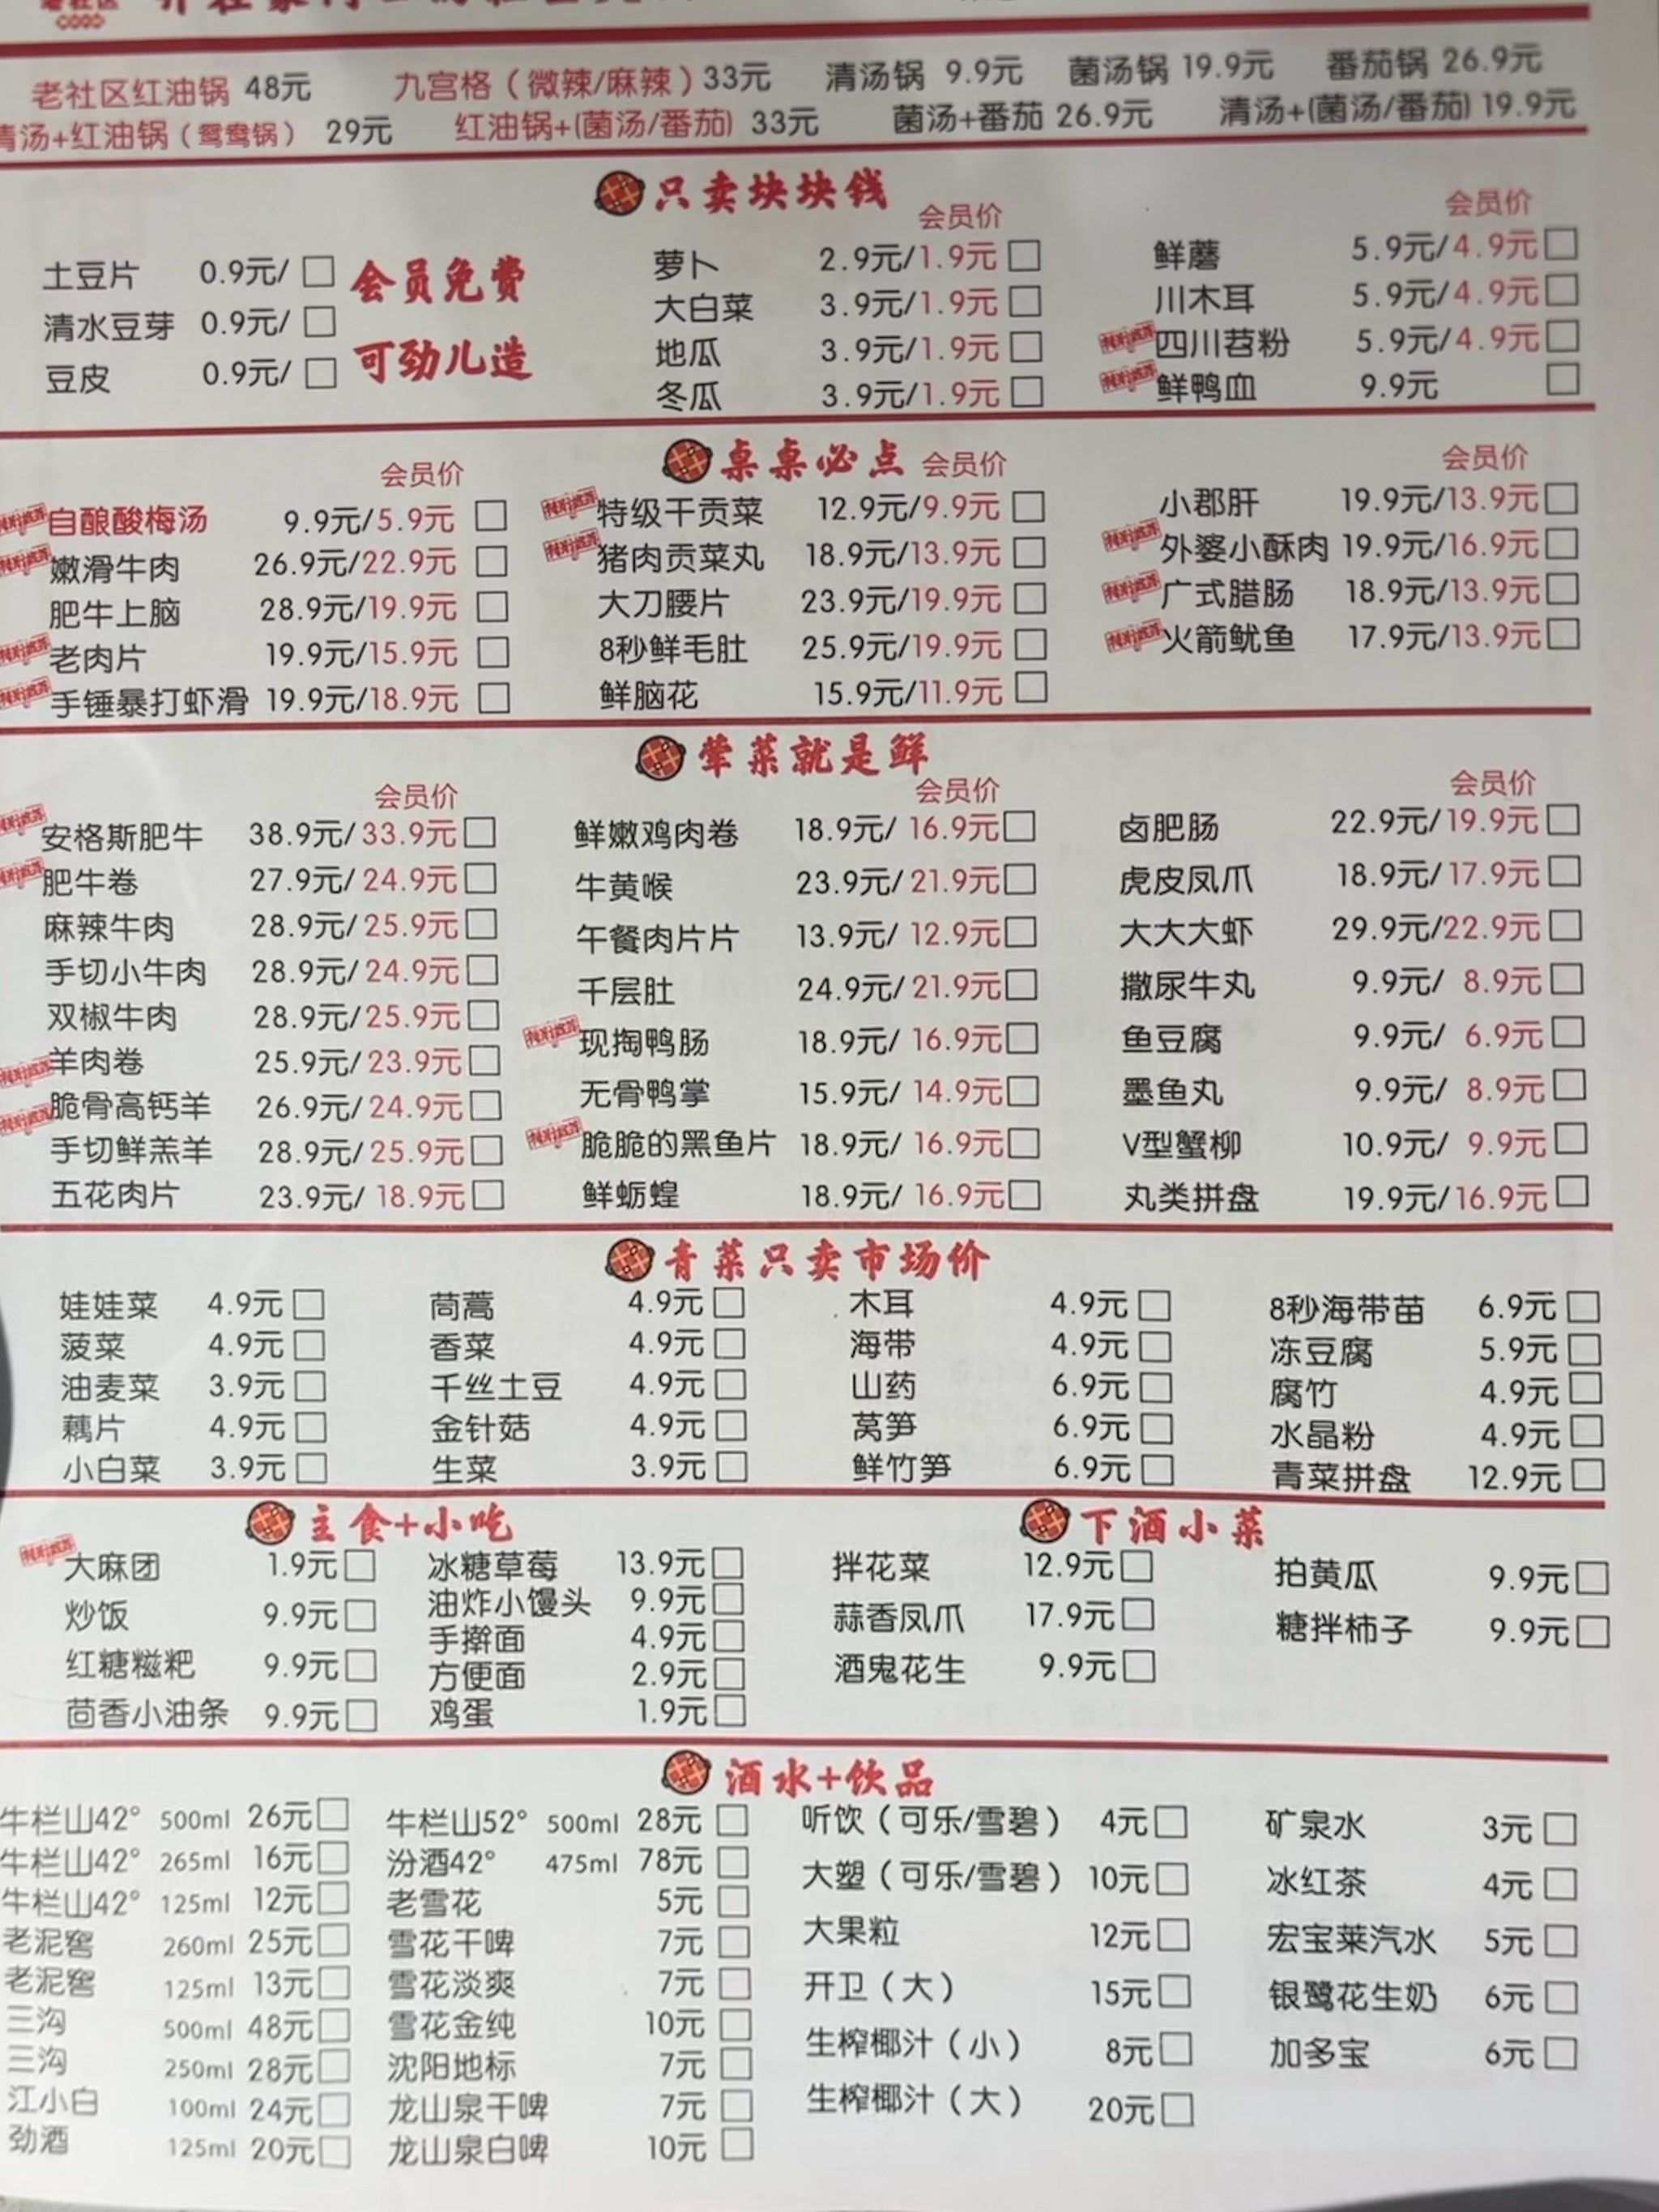 老社区红油锅 48元 九宫格（微辣/麻辣）33元 清汤锅 9.9元 菌汤锅 19.9元 番茄锅 26.9元
清汤+红油锅（鸳鸯锅） 29元 红油锅+(菌汤/番茄) 33元 菌汤+番茄 26.9元 清汤+(菌汤/番茄) 19.9元
只卖块块钱
会员价 会员价
土豆片 0.9元/
清水豆芽 0.9元/
豆皮 0.9元/
会员免费
可劲儿造
萝卜 2.9元/1.9元
大白菜 3.9元/1.9元
地瓜 3.9元/1.9元
冬瓜 3.9元/1.9元
鲜蘑 5.9元/4.9元
川木耳 5.9元/4.9元
四川苕粉 5.9元/4.9元
鲜鸭血 9.9元
桌桌必点
会员价 会员价 会员价
自酿酸梅汤 9.9元/5.9元
嫩滑牛肉 26.9元/22.9元
肥牛上脑 28.9元/19.9元
老肉片 19.9元/15.9元
手锤暴打虾滑 19.9元/18.9元
特级干贡菜 12.9元/9.9元
猪肉贡菜丸 18.9元/13.9元
大刀腰片 23.9元/19.9元
8秒鲜毛肚 25.9元/19.9元
鲜脑花 15.9元/11.9元
小郡肝 19.9元/13.9元
外婆小酥肉 19.9元/16.9元
广式腊肠 18.9元/13.9元
火箭鱿鱼 17.9元/13.9元
荤菜就是鲜
会员价 会员价 会员价
安格斯肥牛 38.9元/33.9元
肥牛卷 27.9元/24.9元
麻辣牛肉 28.9元/25.9元
手切小牛肉 28.9元/24.9元
双椒牛肉 28.9元/25.9元
羊肉卷 25.9元/23.9元
脆骨高钙羊 26.9元/24.9元
手切鲜羔羊 28.9元/25.9元
五花肉片 23.9元/18.9元
鲜嫩鸡肉卷 18.9元/16.9元
牛黄喉 23.9元/21.9元
午餐肉片片 13.9元/12.9元
千层肚 24.9元/21.9元
现掏鸭肠 18.9元/16.9元
无骨鸭掌 15.9元/14.9元
脆脆的黑鱼片 18.9元/16.9元
鲜蛎蝗 18.9元/16.9元
卤肥肠 22.9元/19.9元
虎皮凤爪 18.9元/17.9元
大大大虾 29.9元/22.9元
撒尿牛丸 9.9元/8.9元
鱼豆腐 9.9元/6.9元
墨鱼丸 9.9元/8.9元
V型蟹柳 10.9元/9.9元
丸类拼盘 19.9元/16.9元
青菜只卖市场价
娃娃菜 4.9元
菠菜 4.9元
油麦菜 3.9元
藕片 4.9元
小白菜 3.9元
茼蒿 4.9元
香菜 4.9元
千丝土豆 4.9元
金针菇 4.9元
生菜 3.9元
木耳 4.9元
海带 4.9元
山药 6.9元
莴笋 6.9元
鲜竹笋 6.9元
8秒海带苗 6.9元
冻豆腐 5.9元
腐竹 4.9元
水晶粉 4.9元
青菜拼盘 12.9元
主食+小吃
大麻团 1.9元
炒饭 9.9元
红糖糍粑 9.9元
茴香小油条 9.9元
冰糖草莓 13.9元
油炸小馒头 9.9元
手擀面 4.9元
方便面 2.9元
鸡蛋 1.9元
下酒小菜
拌花菜 12.9元
蒜香凤爪 17.9元
酒鬼花生 9.9元
拍黄瓜 9.9元
糖拌柿子 9.9元
酒水+饮品
牛栏山42° 500ml 26元
牛栏山42° 265ml 16元
牛栏山42° 125ml 12元
老泥窖 260ml 25元
老泥窖 125ml 13元
三沟 500ml 48元
三沟 250ml 28元
江小白 100ml 24元
劲酒 125ml 20元
牛栏山52° 500ml 28元
汾酒42° 475ml 78元
老雪花 5元
雪花干啤 7元
雪花淡爽 7元
雪花金纯 10元
沈阳地标 7元
龙山泉干啤 7元
龙山泉白啤 10元
听饮（可乐/雪碧） 4元
大塑（可乐/雪碧） 10元
大果粒 12元
开卫（大） 15元
生榨椰汁（小） 8元
生榨椰汁（大） 20元
矿泉水 3元
冰红茶 4元
宏宝莱汽水 5元
银鹭花生奶 6元
加多宝 6元